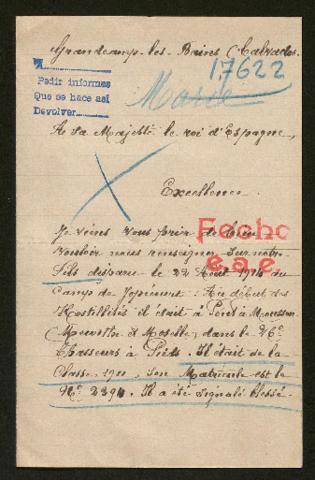 Grandcamp-les-Bains (Calvados.
17622
Pedir informes
Que se hace así
Devolver
Marde
A Sa Majesté le roi d'Espagne,
Excellence.
Je viens vous prier de bien
vouloir nous renseigner sur notre
fils disparu le 22 Août 1914 au
Camp de Jopécourt : Au début des
Hostilités il était à Pont à Mousson
Meurthe et Moselle dans le 26e
Chasseurs à Pieds. Il était de la
Classe 1911, son Matricule est le
No 2394. Il a été signalé blessé
Fecho
e.a.e.